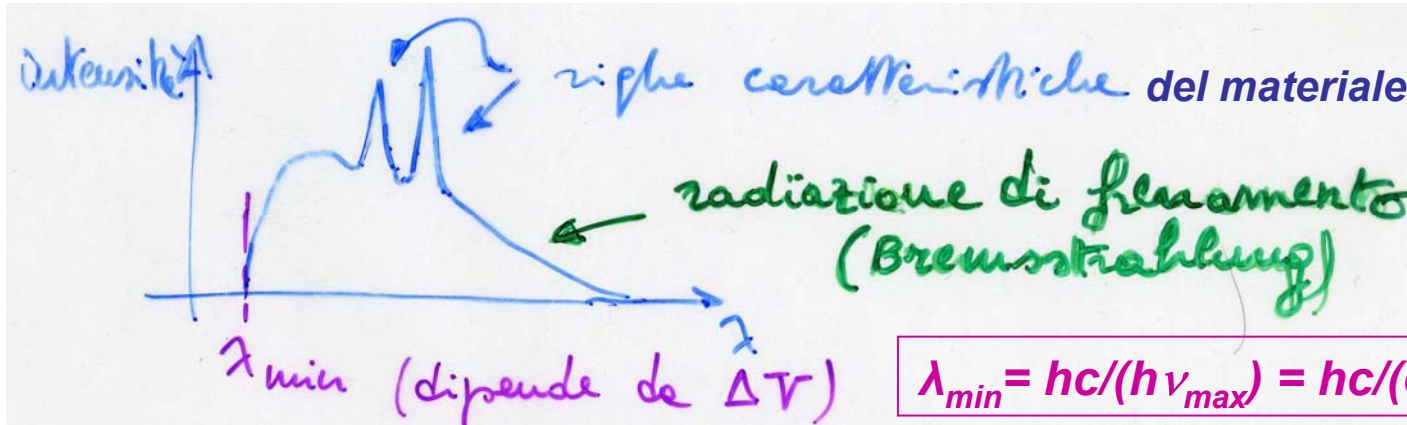 intensità
righe caratteristiche del materiale
radiazione di frenamento
(Bremsstrahlung)
λ
λmin (dipende da ΔV)
λmin= hc/(hνmax) = hc/(